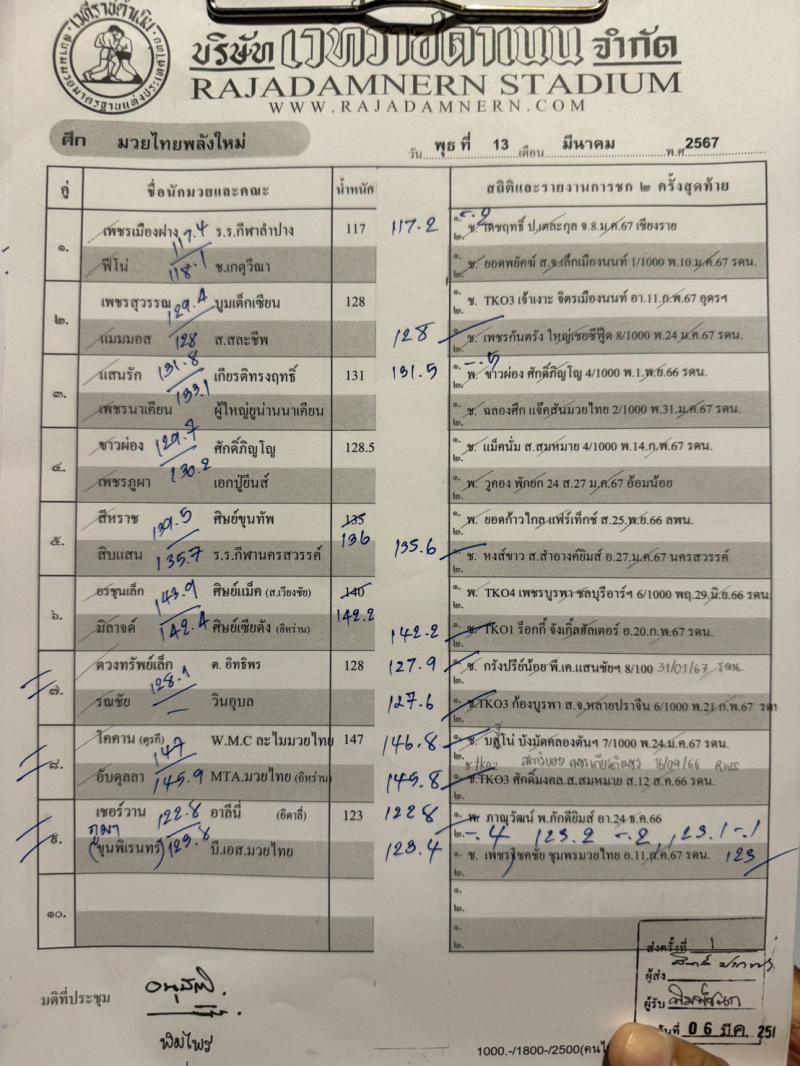 เวทีราชดำเนิน
บริษัท เวทีราชดำเนิน จำกัด
RAJADAMNERN STADIUM
WWW.RAJADAMNERN.COM
ศึก มวยไทยพลังใหม่ วัน พุธ ที่ 13 เดือน มีนาคม พ.ศ. 2567
คู่ ชื่อนักมวยและคณะ น้ำหนัก สถิติและรายงานการชก ๒ ครั้งสุดท้าย
๑. เพชรเมืองฝาง 117.4 ร.ร.กีฬาลำปาง 117 117.2 ๑. ช. เดชฤทธิ์ ป.เตละกุล จ.8.ม.ค.67 เชียงราย
ฟีโน่ 118.1 ช.เกตุวีณา ๑. ช. ยอดพยัคฆ์ ส.จ.เล็กเมืองนนท์ 1/1000 พ.10.ม.ค.67 รดน.
๒. เพชรสุวรรณ 129.4 บูมเด็กเซียน 128 ๑. ช. TKO3 เจ้าเงาะ จิตรเมืองนนท์ อา.11.ก.พ.67 อุดรฯ
แมมมอส 128 ส.สละชีพ 128 ๑. ช. เพชรกันตรัง ใหญ่เชยซีฟู๊ด 8/1000 พ.24.ม.ค.67 รดน.
๓. แสนรัก 131.8 เกียรติทรงฤทธิ์ 131 131.5 ๑. พ. ขาวผ่อง ศักดิ์ภิญโญ 4/1000 พ.1.พ.ย.66 รดน.
เพชรนาเคียน 133.1 ผู้ใหญ่ยูน่านนาเคียน ๑. ช. ฉลองศึก แจ๊คสันมวยไทย 2/1000 พ.31.ม.ค.67 รดน.
๔. ขาวผ่อง 129.7 ศักดิ์ภิญโญ 128.5 ๑. ช. แม็คนั่ม ส.สมหมาย 4/1000 พ.14.ก.พ.67 รดน.
เพชรภูผา 130.2 เอกปู่ยีนส์ ๑. พ. วูคอง พักยก 24 ส.27 ม.ค.67 อ้อมน้อย
๕. สีหราช 139.5 ศิษย์ขุนทัพ 135 136 ๑. พ. ยอดก้าวไกล แฟร์เท็กซ์ ส.25.พ.ย.66 ลพน.
สิบแสน 135.7 ร.ร.กีฬานครสวรรค์ 135.6 ๑. ช. หงส์ขาว ส.สำอางค์ยิมส์ อ.27.ม.ค.67 นครสวรรค์
๖. อรชุนเล็ก 143.9 ศิษย์แม็ค (ส.เวียงชัย) 140 142.2 ๑. พ. TKO4 เพชรบูรพา ชลบุรีอาร์ฯ 6/1000 พฤ.29.มิ.ย.66 รดน.
มิลาจด์ 142.4 ศิษย์เซียดัง (อิหร่าน) 142.2 ๑. ช. TKO1 ร็อกกี้ จังเกิ้ลฮัลเตอร์ อ.20.ก.พ.67 รดน.
๗. ดวงทรัพย์เล็ก 128.1 ต. อิทธิพร 128 127.9 ๑. ช. กรังปรีย์น้อย พี.เค.แสนชัยฯ 8/100 31/01/67 รดน.
รณชัย วินอุบล 127.6 ๑. ช.TKO3 ก้องบูรพา ส.จ.หลายปราจีน 6/1000 พ.21 ก.พ.67 รดา
๘. โคคาน (ตุรกี) 147 W.M.C ละไมมวยไทย 147 146.8 ๑. ช. บลูโน่ บังมัดคลองตันฯ 7/1000 พ.24.ม.ค.67 รดน.
ช.tko2 16/09/66 RWS
อับดุลลา 145.9 MTA.มวยไทย (อิหร่าน) 145.8 ๑. ช.TKO3 ศักดิ์มงคล ส.สมหมาย ส.12 ส.ค.66 รดน.
๙. เชอร์วาน 122.8 อาลีนี่ (อิตาลี่) 123 122.8 ๑. พ. ภาณุวัฒน์ พ.ภักดียิมส์ อา.24 ธ.ค.66
๒. -.4 123.2 -.2 123.1 -.1
ภูผา (ขุนพิเรนทร์) 123.8 บี.เอส.มวยไทย 123.4 ๑. ช. เพชรโชคชัย ชุมพรมวยไทย อ.11.ม.ค.67 รดน. 123
๑๐. ๑.
๒.
๑.
๒.
มติที่ประชุม อนุมัติ.
พิมไพร
ส่งครั้งที่ 1
ผู้ส่ง
ผู้รับ
วันที่ 06 มี.ค. 256
1000.-/1800-/2500(คนไ